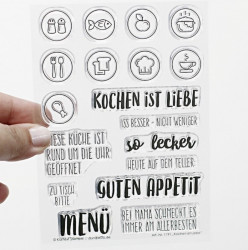 KOCHEN IST LIEBE
ISS BESSER - NICHT WENIGER
DIESE KÜCHE IST
RUND UM DIE UHR
GEÖFFNET
so lecker
HEUTE AUF DEM TELLER
ZU TISCH
BITTE
GUTEN APPETIT
MENÜ
BEI MAMA SCHMECKT ES
IMMER AM ALLERBESTEN